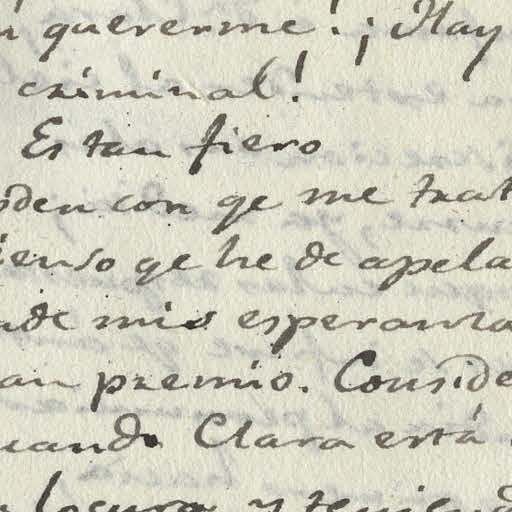 quererme! ¡Hay
criminal!
Es tan fiero
oden con qe me trat
ienso qe he de apela
nde mis esperanza
an premio. Conside
uando Clara está
locura y teniend